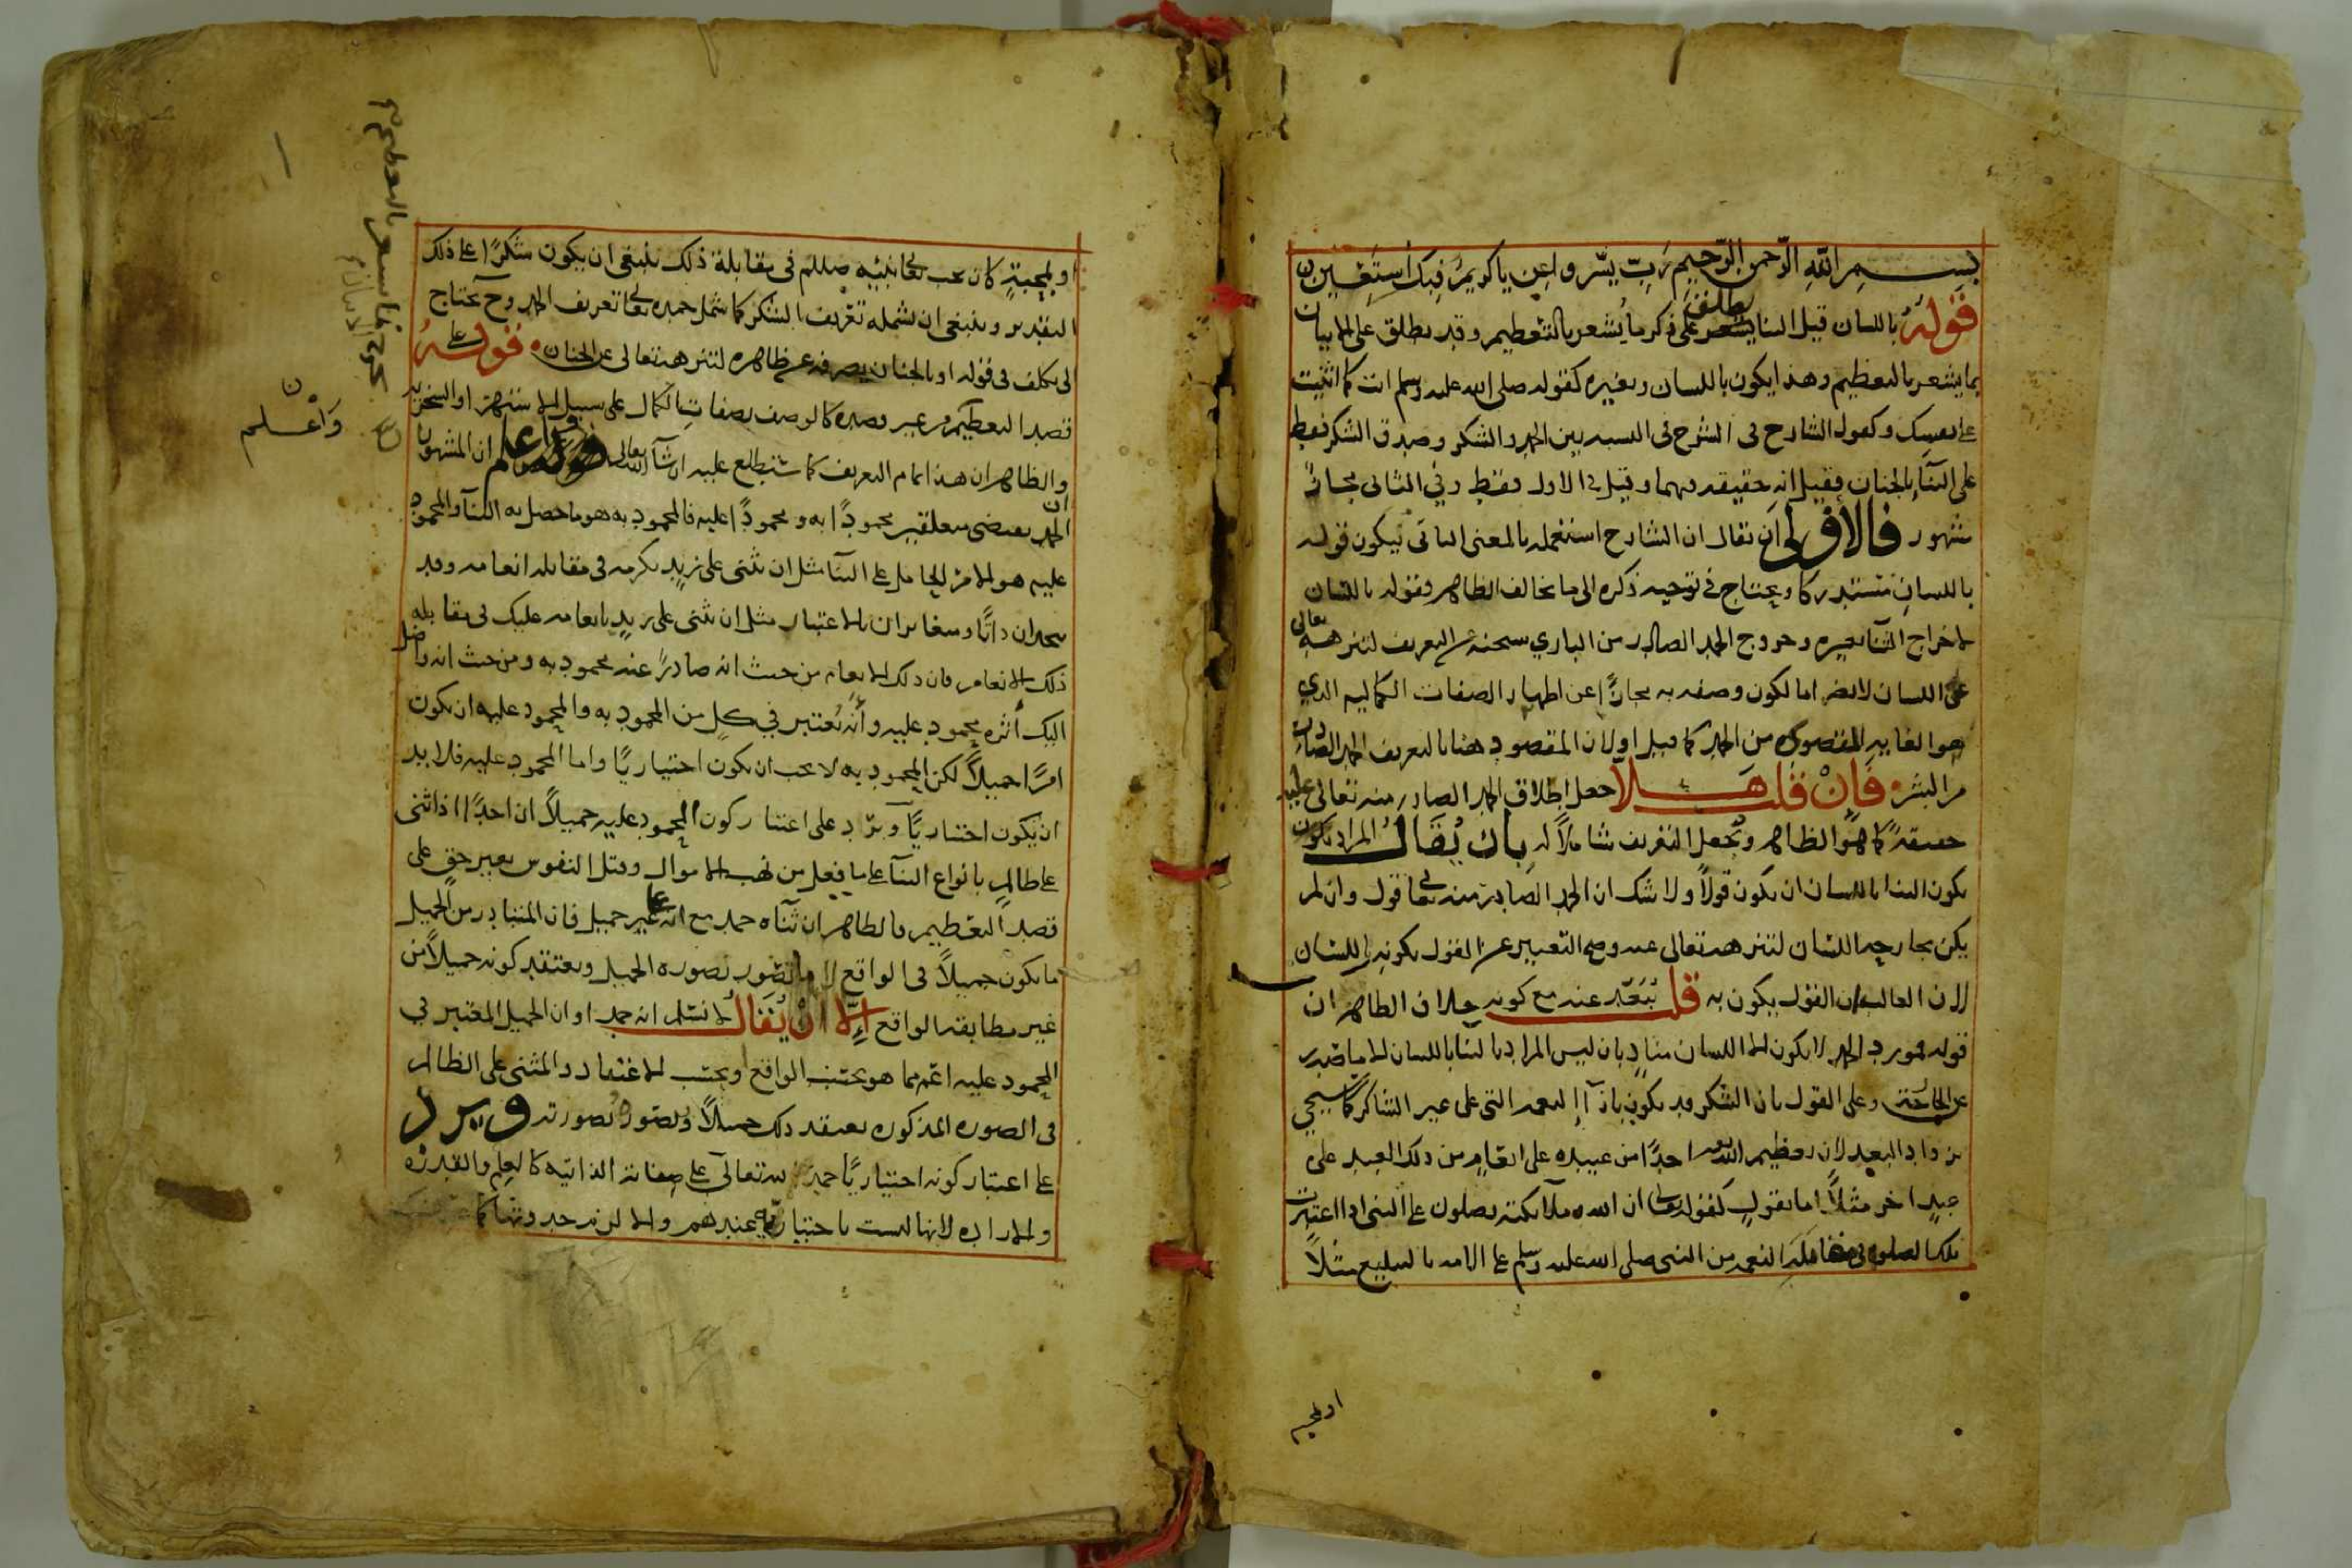 بسم الله الرحمن الرحيم رب يسر واعن ياكريم فبك أستعين
قوله باللسان قيل الثنا يطلق على ذكر ما يشعر بالتعظيم وقد يطلق على الاتيان
بما يشعر بالتعظيم وهذا يكون باللسان وبغيره كقوله صلى الله عليه وسلم انت كما اثنيت
على نفسك وكقول الشارح فى الشرح فى النسبه بين الحمد والشكر وصدق الشكر فقط
على الثنآ بالجنان فقيل انه حقيقه فيهما وقيل فى الاول فقط وفي الثانى مجاز
مشهور فالاولى ان يقال ان الشارح استعمله بالمعنى الثانى فيكون قوله
باللسان مستدركا ويحتاج فى توجيه ذكره الى ما يخالف الظاهر وقوله باللسان
لاخراج الثنآ بغيره وخروج الحمد الصادر من الباري سبحنه عن التعريف لتنزهه تعالى
عن اللسان لا يضر اما لكون وصفه به مجازًا عن اظهار الصفات الكماليه الذي
هو الغايه المقصوده من الحمد كما قيل اولان المقصود هنا بالتعريف الحمد الصادر
من البشر فان قلت هلا جعل اطلاق الحمد الصادر منه تعالى عليه
حقيقةً كما هو الظاهر ويجعل التعريف شاملاً له بان يقال المراد بكون
يكون الثنا باللسان ان يكون قولاً ولا شك ان الحمد الصادر منه تعالى قول وان لم
يكن بجارحه اللسان لتنزهه تعالى عنه وصح التعبير عن القول بكونه باللسان
لان الغالب ان القول يكون به قلت يبعد عنه مع كونه خلاف الظاهر ان
قوله فمورد الحمد لا يكون الا اللسان مناد بان ليس المراد بالثنا باللسان الا ما صدر
عن الجارحة وعلى القول بان الشكر قد يكون بازآ النعمه التى على غير الشاكر كما سيجي
يزداد البعد لان تعظيم الله احدًا من عبيده على انعام من ذلك العبد على
عبد اخر مثلاً اما بقول كقوله تعالى ان الله وملآئكته يصلون على النبى اذا اعتبرت
تلك الصلوه فى مقابلة النعمه من النبى صلى الله عليه وسلم على الامه بالتبليغ مثلاً
او بمحبة
او بمحبةٍ كان يحب تعالى نبيه صللم فى مقابلة ذلك ينبغى ان يكون شكرًا على ذلك
التقدير وينبغى ان يشمله تعريف الشكر كما شمل حمده تعالى تعريف الحمد وح يحتاج
الى تكلف فى قوله او بالجنان يصرفه عن ظاهره لتنزهه تعالى عن الجنان قوله على
قصد التعظيم من غير قصده كالوصف بصفات الكمال على سبيل الاستهزا والسخريه
والظاهر ان هذا تمام التعريف كما ستطلع عليه ان شآ الله تعالى واعلم ان المشهور ان
الحمد يقتضى متعلقين محمودًا به ومحمودًا عليه فالمحمود به هو ما حصل به الثنآ والمحمود
عليه هو الامر الحامل على الثنآ مثل ان تثنى على زيد بكرمه فى مقابله انعامه وقد
يتحدان ذاتًا ومتغايران بالاعتبار مثل ان تثنى على زيد بانعامه عليك فى مقابله
ذلك الانعام فان ذلك الانعام من حيث انه صادرًا عنه محمود به ومن حيث انه واصل
اليك أثره محمود عليه وأنه يعتبر في كل من المحمود به والمحمود عليه ان يكون
امرًا جميلاً لكن المحمود به لا يجب ان يكون اختياريًا واما المحمود عليه فلا بد
ان يكون اختياريًا ويرد على اعتبار كون المحمود عليه جميلاً ان احدًا اذا اثنى
على ظالم بانواع الثنآ على ما فعل من نهب الاموال وقتل النفوس بغير حق على
قصد التعظيم فالظاهر ان ثنآه حمد مع انه على غير جميل فان المتبادر من الجميل
ما يكون جميلاً فى الواقع لا ما تصور بصوره الجميل ويعتقد كونه جميلاً من
غير مطابقه الواقع إلا ان يقال لا نسلم انه حمد او ان الجميل المعتبر في
المحمود عليه اعم مما هو بحسب الواقع او بحسب الاعتقاد والمثنى على الظالم
فى الصوره المذكوره يعتقد ذلك جميلاً ويصوره بصورته ويرد
على اعتبار كونه اختياريًا حمد الله تعالى على صفاته الذاتيه كالعلم والقدرة
والاراده لانها ليست باختياريه عندهم والا لزم حدوثها كما
واعلم